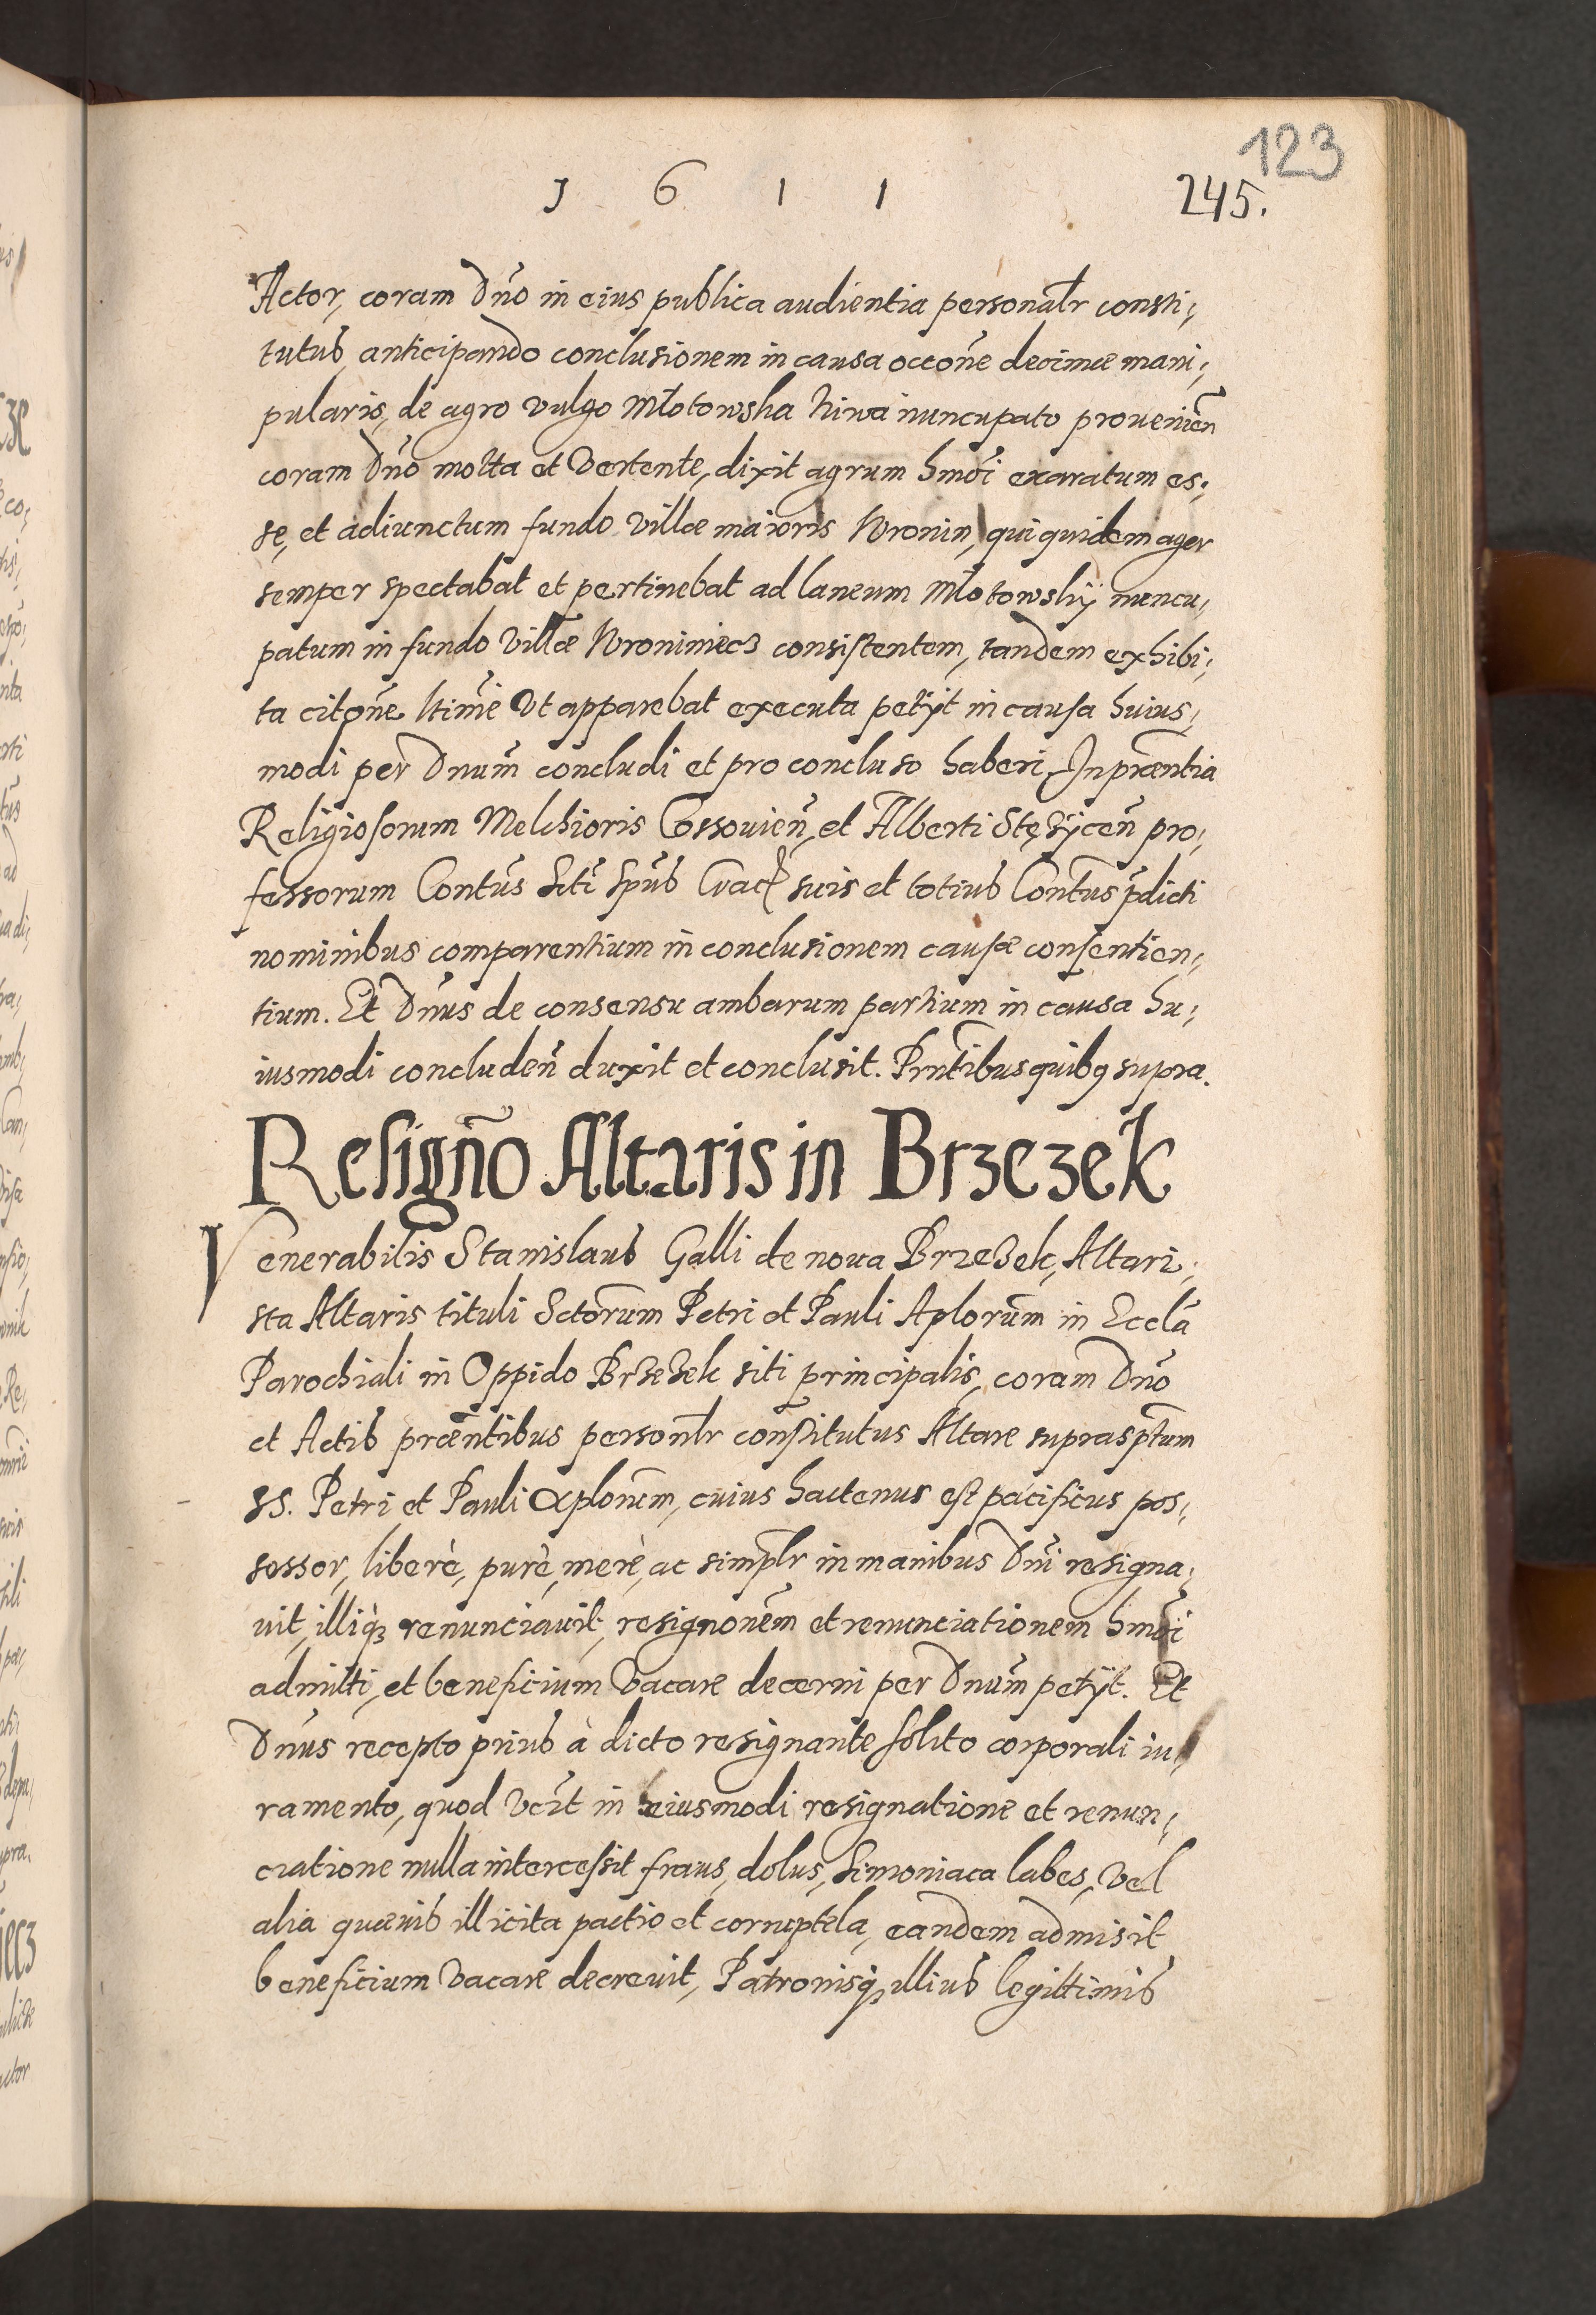 123
1 6 1 1
245.
Actor, coram Dño in eius publica audientia personalr consti;
tutus, anticipando conclusionem in causa occõne decimæ mani;
pularis, de agro vulgo Młotowska Niwa nuncupato prouenieñ
coram Dño mota et vertente, dixit agrum hmõi exaratum es;
se, et adiunctum fundo villæ maioris Wronin, qui quidem ager
semper spectabat et pertinebat ad laneum Młotowskÿ nuncu;
patum in fundo villæ Wroniniecz consistentem, tandem exhibi;
ta citõne ltime vt apparebat executa petÿt in causa huius;
modi per Dnum concludi et pro concluso haberi, In præntia
Religiosorum Melchioris Cossouieñ, et Alberti Stęzÿceñ pro;
fessorum Contus Scti Spus Crac suis et totius Contus pdicti
nominibus comparentium in conclusionem causæ consentien;
tium. Et Dnus de consensu ambarum partium in causa hu;
iusmodi concludeñ duxit et conclusit. Prntibus quibq supra.
Resigño Altaris in Brzezek
Venerabilis Stanislaus Galli de noua Brzezek, Altari;
sta Altaris tituli Sctorum Petri et Pauli Aplorum in Eccla
Parochiali in Oppido Brzezek siti principalis, coram Dño
et Actis præntibus personlr constitutus Altare suprasptum
SS. Petri et Pauli Aplorum, cuius hactenus est pacificus pos;
sessor, liberè, purè, merè, ac simplr in manibus Dni resigna;
uit, illiq; renunciauit, resignonem et renunciationem hmõi
admitti, et beneficium vacare decerni per Dnum petÿt. Et
Dnus recepto prius à dicto resignante solito corporali iu
ramento, quod vczt in eiusmodi resignatione et renun;
ciatione nulla intercessit fraus, dolus, simoniaca labes, vel
alia quævis illicita pactio et corruptela, eandem admisit
beneficium vacare decreuit, Patronisq; illius legittimis